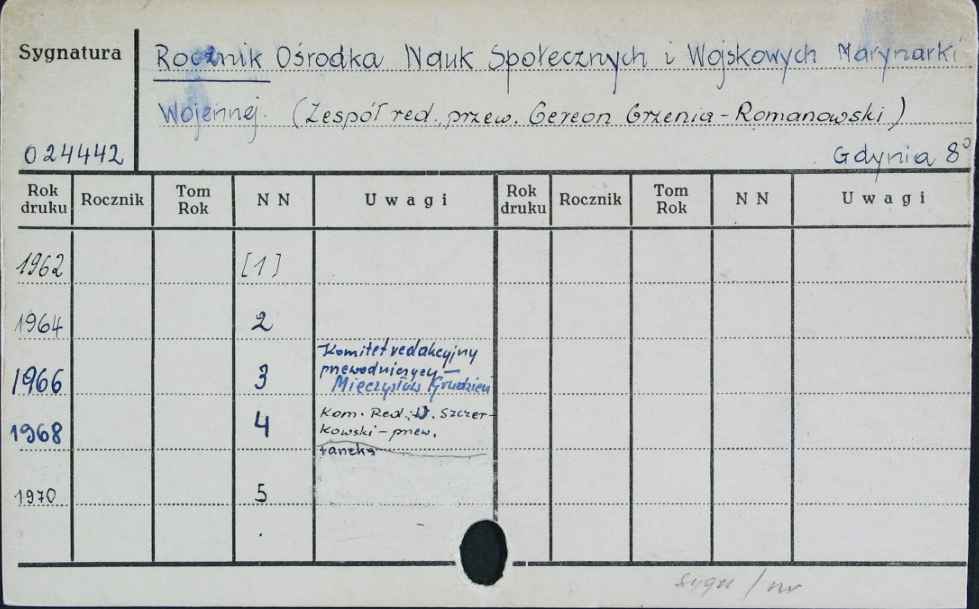 Sygnatura
Rocznik Ośrodka Nauk Społecznych i Wojskowych Marynarki
Wojennej. (Zespół red. przew. Gereon Grzenia-Romanowski)
024442
Gdynia 8°
Rok druku Rocznik Tom Rok NN Uwagi Rok druku Rocznik Tom Rok NN Uwagi
1962 [1]
1964 2
Komitet redakcyjny
przewodniczący –
1966 3 Mieczysław Grudzień
Kom. Red. W. Szczer-
1968 4 kowski – przew.
1970 5
sygn / nr